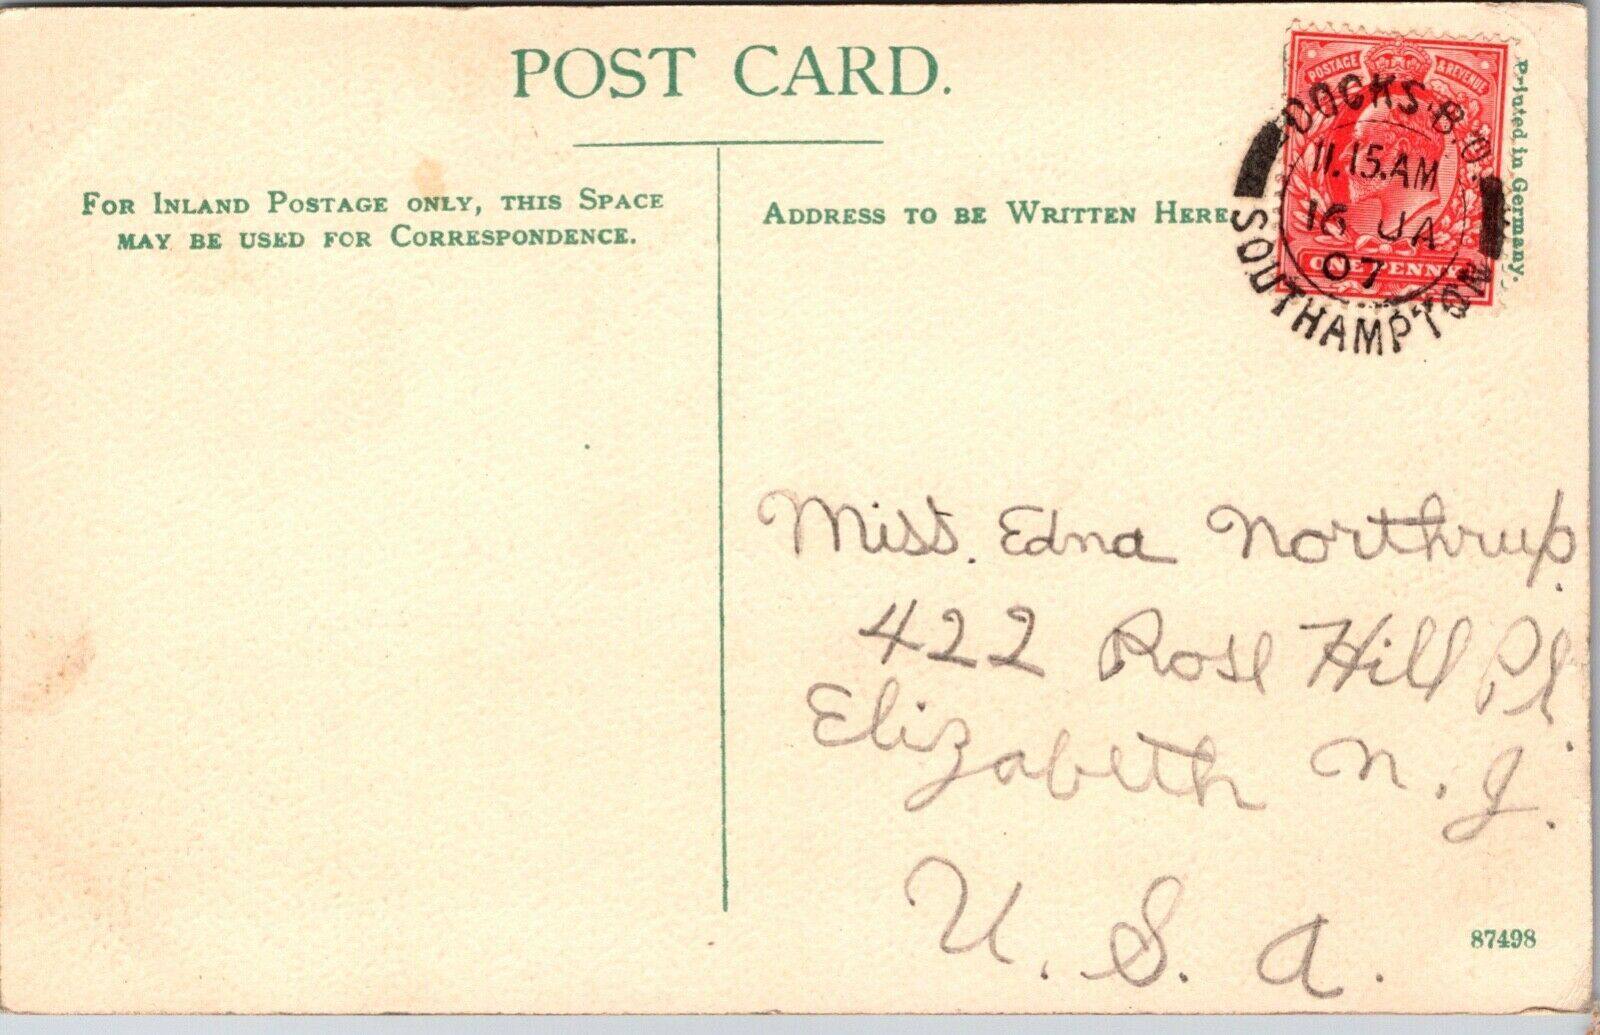 POST CARD.
FOR INLAND POSTAGE ONLY, THIS SPACE
MAY BE USED FOR CORRESPONDENCE.
ADDRESS TO BE WRITTEN HERE
POSTAGE & REVENUE
ONE PENNY
DOCKS B.O.
11.15.AM
16 JA
07
SOUTHAMPTON
Printed in Germany.
Miss. Edna Northrup.
422 Rose Hill Pl.
Elizabeth N. J.
U. S. A.
87498